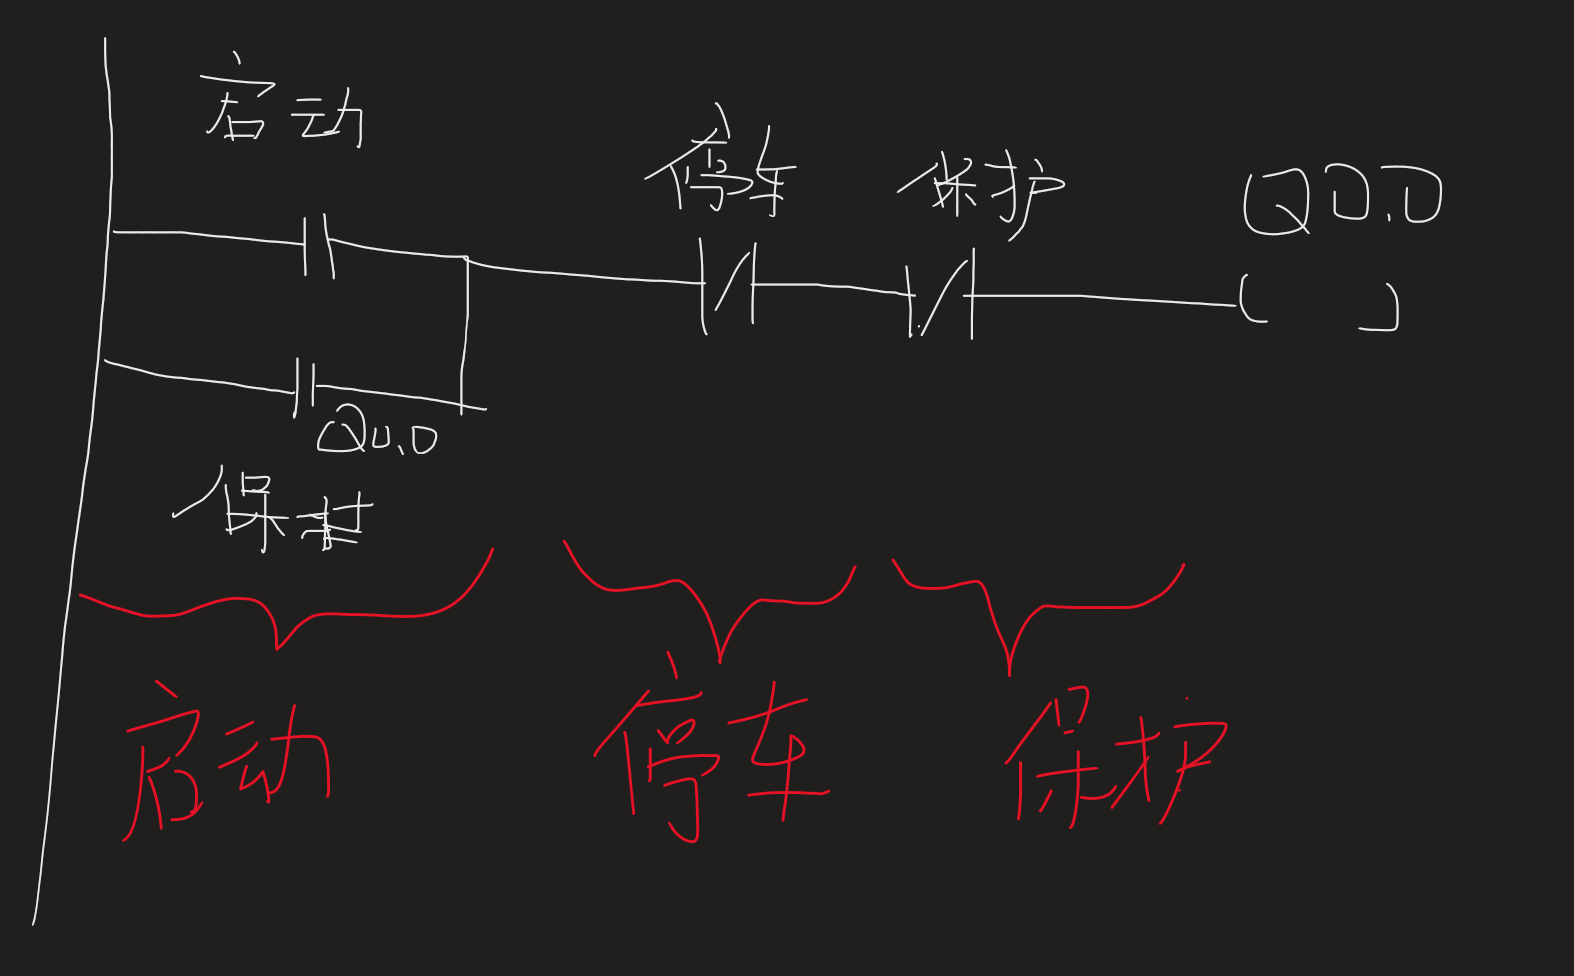 启动
停车
保护
Q0.0
Q0.0
保持
启动
停车
保护